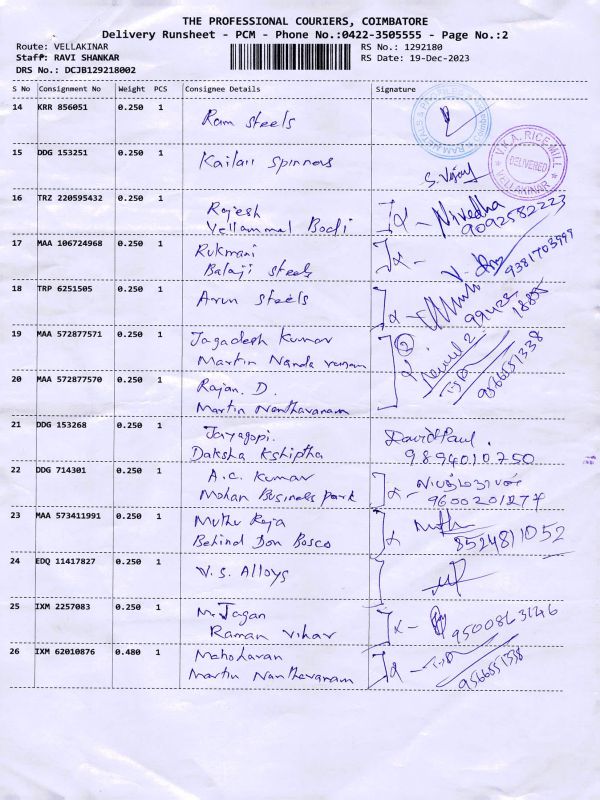 THE PROFESSIONAL COURIERS, COIMBATORE
Delivery Runsheet - PCM - Phone No.:0422-3505555 - Page No.:2
Route: VELLAKINAR
RS No.: 1292180
Staff: RAVI SHANKAR
RS Date: 19-Dec-2023
DRS No.: DCJB129218002
S No Consignment No Weight PCS Consignee Details Signature
14 KRR 856051 0.250 1 Ram steels
15 DDG 153251 0.250 1 Kailash spinners S. Vijay
V.K.A. RICE MILL
DELIVERED
VELLAKINAR
16 TRZ 220595432 0.250 1 Rajesh
Yellammal Bodi
Nivedha
9092582223
17 MAA 106724968 0.250 1 Rukmani
Balaji steels
18 TRP 6251505 0.250 1 Arun steels
19 MAA 572877571 0.250 1 Jagadesh Kumar
Martin Nanda vanam
9566551338
20 MAA 572877570 0.250 1 Rajan. D.
Martin Nanthavanam
21 DDG 153268 0.250 1 Jayagopi.
Daksha Kshiptha
David Paul.
9894010750
22 DDG 714301 0.250 1 A.C. Kumar
Mohan Business park
9600201274
23 MAA 573411991 0.250 1 Muthu Raja
Behind Don Bosco
8524811052
24 EDQ 11417827 0.250 1 V.S. Alloys
25 IXM 2257083 0.250 1 M. Jagan
Raman vihar
9500863146
26 IXM 62010876 0.480 1 Manoharan
Martin Nanthavanam
9566551338